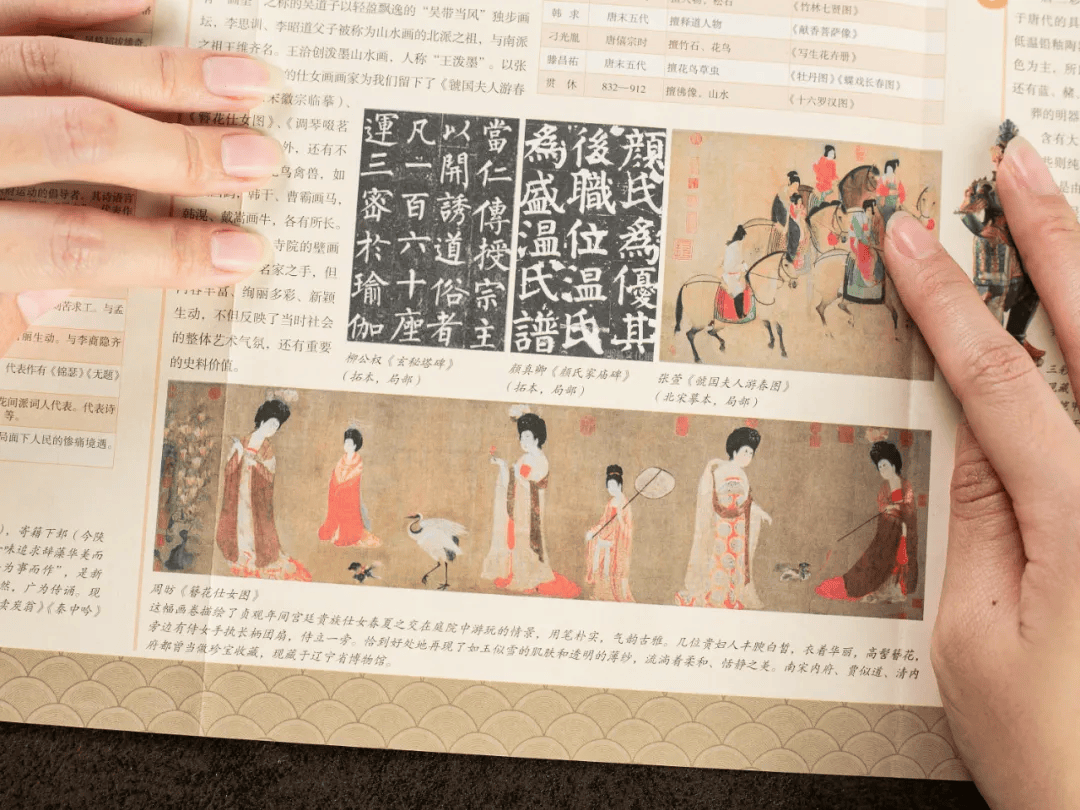 之称的吴道子以轻盈飘逸的“吴带当风”独步画
坛，李思训、李昭道父子被称为山水画的北派之祖，与南派
之祖王维齐名。王洽创泼墨山水画，人称“王泼墨”。以张
的仕女画画家为我们留下了《虢国夫人游春
宋徽宗临摹）、
《簪花仕女图》、《调琴啜茗
外，还有不
鸟禽兽，如
韩干、曹霸画马，
韩滉、戴嵩画牛，各有所长。
寺院的壁画
名家之手，但
内容丰富、绚丽多彩、新颖
生动，不但反映了当时社会
的整体艺术气氛，还有重要
的史料价值。
《竹林七贤图》
韩求 唐末五代 擅释道人物 《献香菩萨像》
刁光胤 唐僖宗时 擅竹石、花鸟 《写生花卉册》
滕昌祐 唐末五代 擅花鸟草虫 《牡丹图》《蝶戏长春图》
贯休 832—912 擅佛像、山水 《十六罗汉图》
當仁傳授宗主
以開誘道俗者
凡一百六十座
運三密於瑜伽
顔氏為優其
後職位温氏
為盛温氏譜
柳公权《玄秘塔碑》
（拓本，局部）
颜真卿《颜氏家庙碑》
（拓本，局部）
张萱《虢国夫人游春图》
（北宋摹本，局部）
周昉《簪花仕女图》
这幅画卷描绘了贞观年间宫廷贵族仕女春夏之交在庭院中游玩的情景，用笔朴实，气韵古雅。几位贵妇人丰腴白皙，衣着华丽，高髻簪花，
旁边有侍女手执长柄团扇，侍立一旁。恰到好处地再现了如玉似雪的肌肤和透明的薄纱，流淌着柔和、恬静之美。南宋内府、贾似道、清内
府都曾当做珍宝收藏，现藏于辽宁省博物馆。
运动的倡导者，其诗语言
苦求工。与孟
丽生动。与李商隐齐
代表作有《锦瑟》《无题》
花间派词人代表。代表诗
等。
局面下人民的惨痛境遇。
，寄籍下邽（今陕
一味追求辞藻华美而
为事而作”，是新
然，广为传诵。现
卖炭翁》《秦中吟》
于唐代的具
低温铅釉陶
色为主，所
还有蓝、赭、
葬的明器
含有大